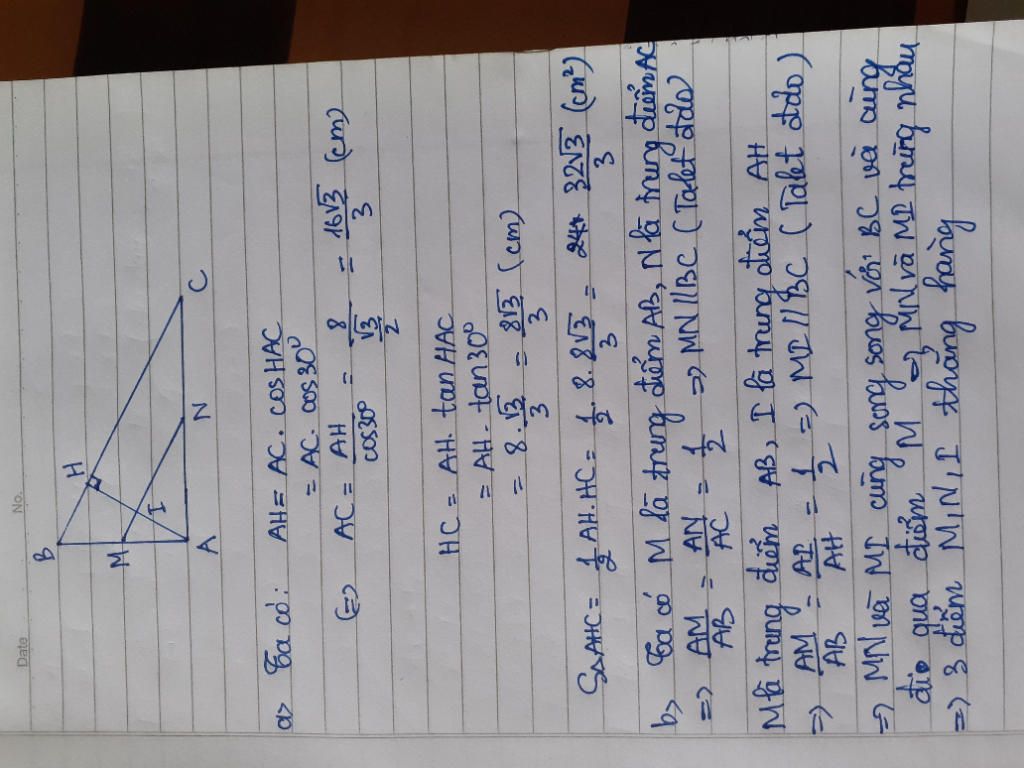 Date No.
B
H
M
I
A
N
C
a> Ta có: AH = AC. cosHAC
= AC. cos30⁰
(=) AC = AH/cos30⁰ = 8/(√3/2) = 16√3/3 (cm)
HC = AH. tanHAC
= AH. tan30⁰
= 8. √3/3 = 8√3/3 (cm)
S△AHC = 1/2 AH.HC = 1/2. 8. 8√3/3 = 32√3/3 (cm²)
b> Ta có M là trung điểm AB, N là trung điểm AC
=> AM/AB = AN/AC = 1/2 => MN//BC (Talet đảo)
M là trung điểm AB, I là trung điểm AH
=> AM/AB = AI/AH = 1/2 => MI//BC (Talet đảo)
=> MN và MI cùng song song với BC và cùng
đi qua điểm M => MN và MI trùng nhau
=> 3 điểm M,N,I thẳng hàng